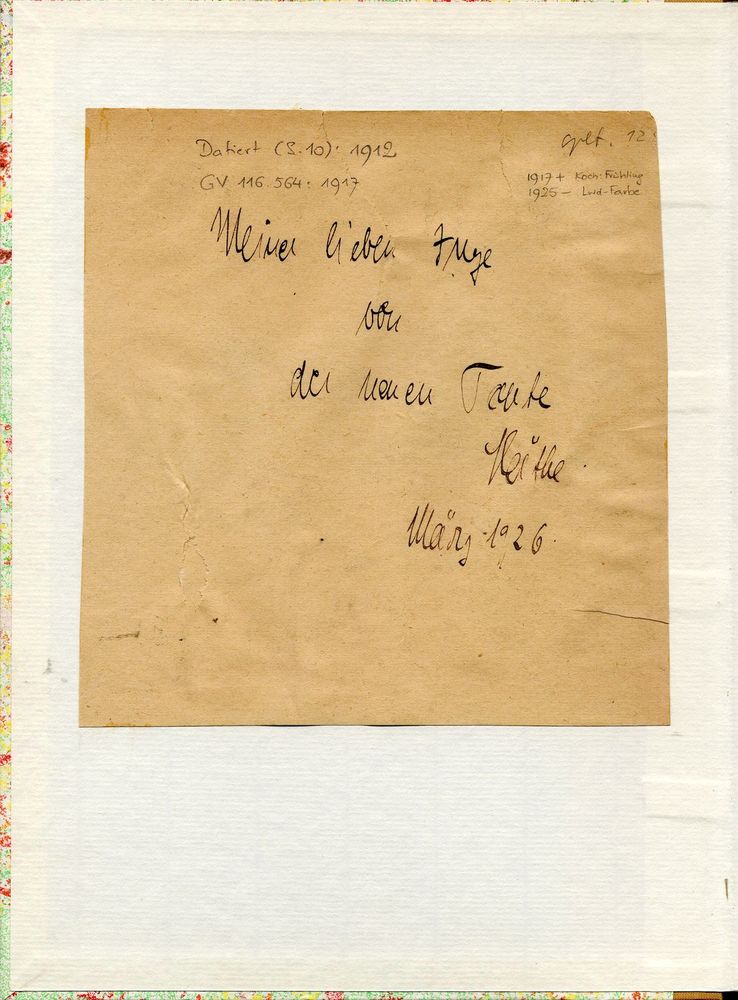 cplt. 12
Datiert (S. 10): 1912
GV 116.564: 1917
1917 + Koch: Frühling
1925 — Lwd-Farbe
Meiner lieben Inge
von
der neuen Tante
Käthe.
März 1926.